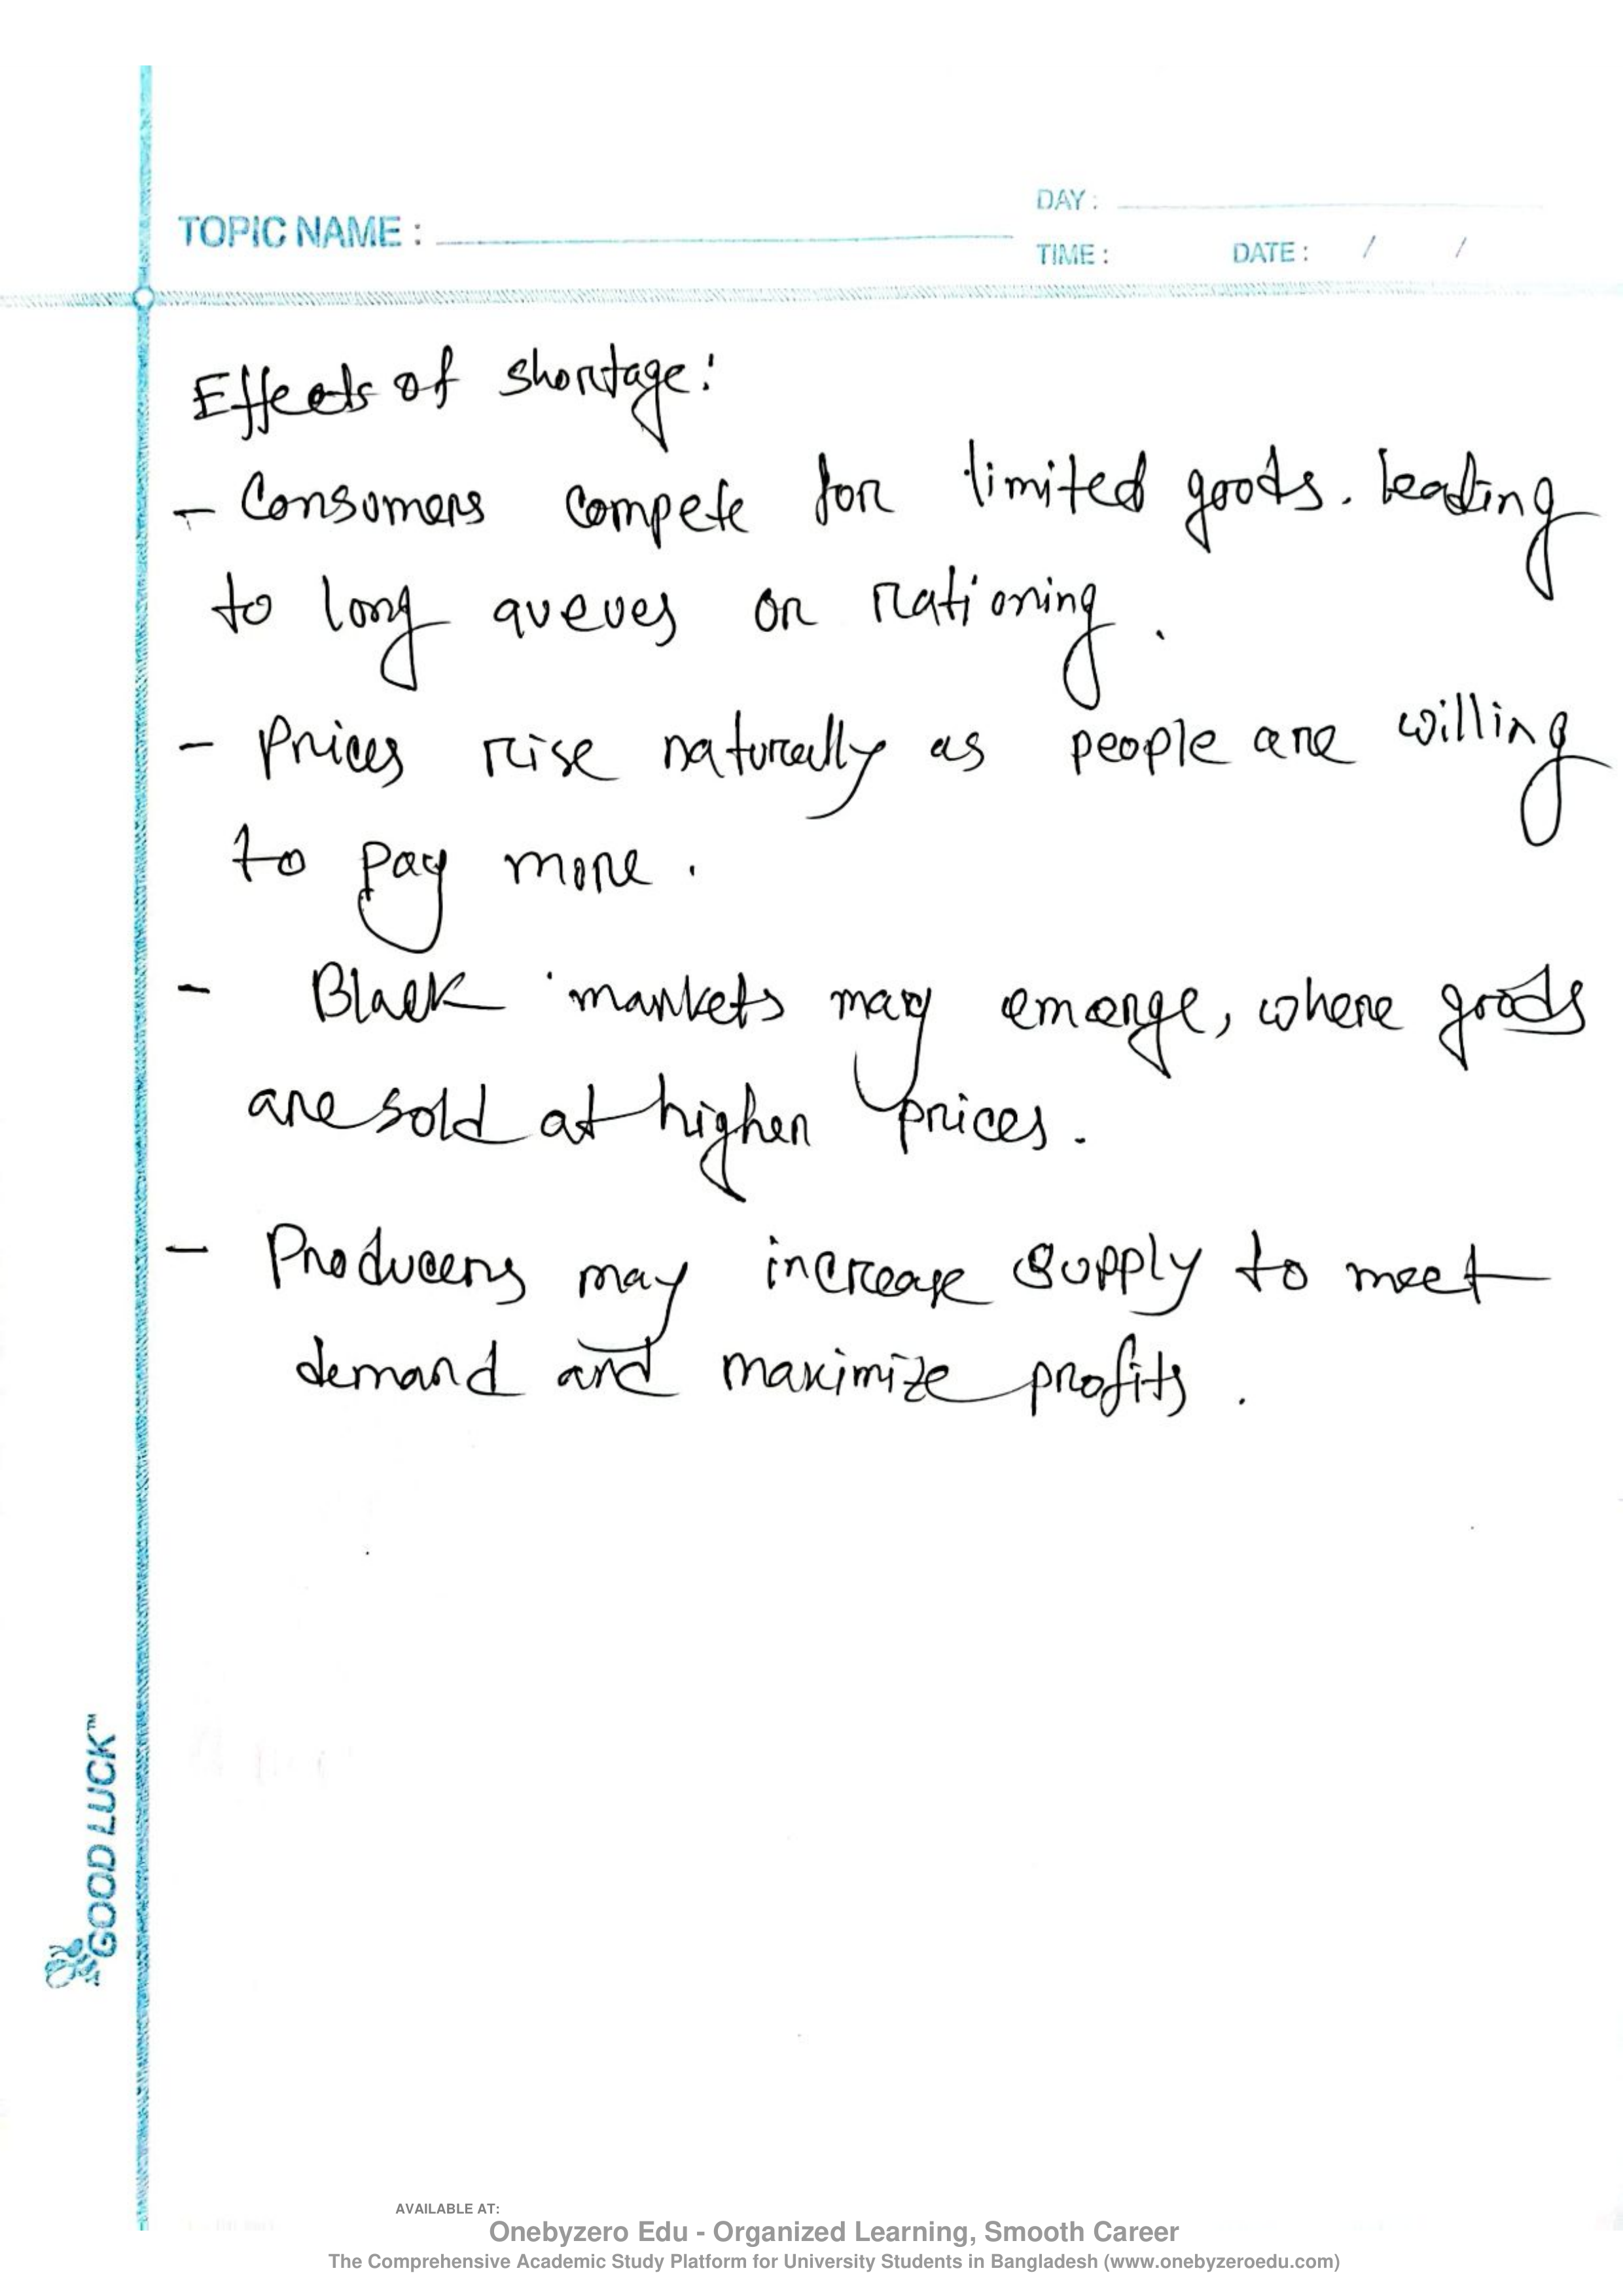 DAY :
TOPIC NAME :
TIME : DATE : / /
Effects of shortage:
- Consumers compete for limited goods. leading
to long queues or rationing.
- Prices rise naturally as people are willing
to pay more.
- Black markets may emerge, where goods
are sold at higher prices.
- Producers may increase supply to meet
demand and maximize profits.
GOOD LUCK™
AVAILABLE AT:
Onebyzero Edu - Organized Learning, Smooth Career
The Comprehensive Academic Study Platform for University Students in Bangladesh (www.onebyzeroedu.com)